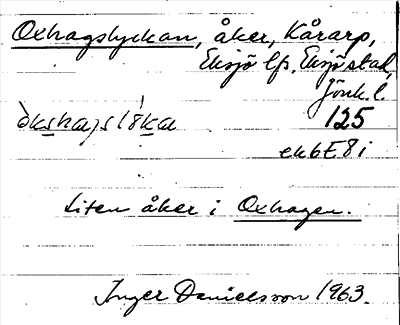 Oxhagslyckan, åker, Kårarp,
Eksjö lfs, Eksjö stad,
Jönk. l.
125
ek 6E8i
Liten åker i Oxhagen.
Inger Danielsson 1963.